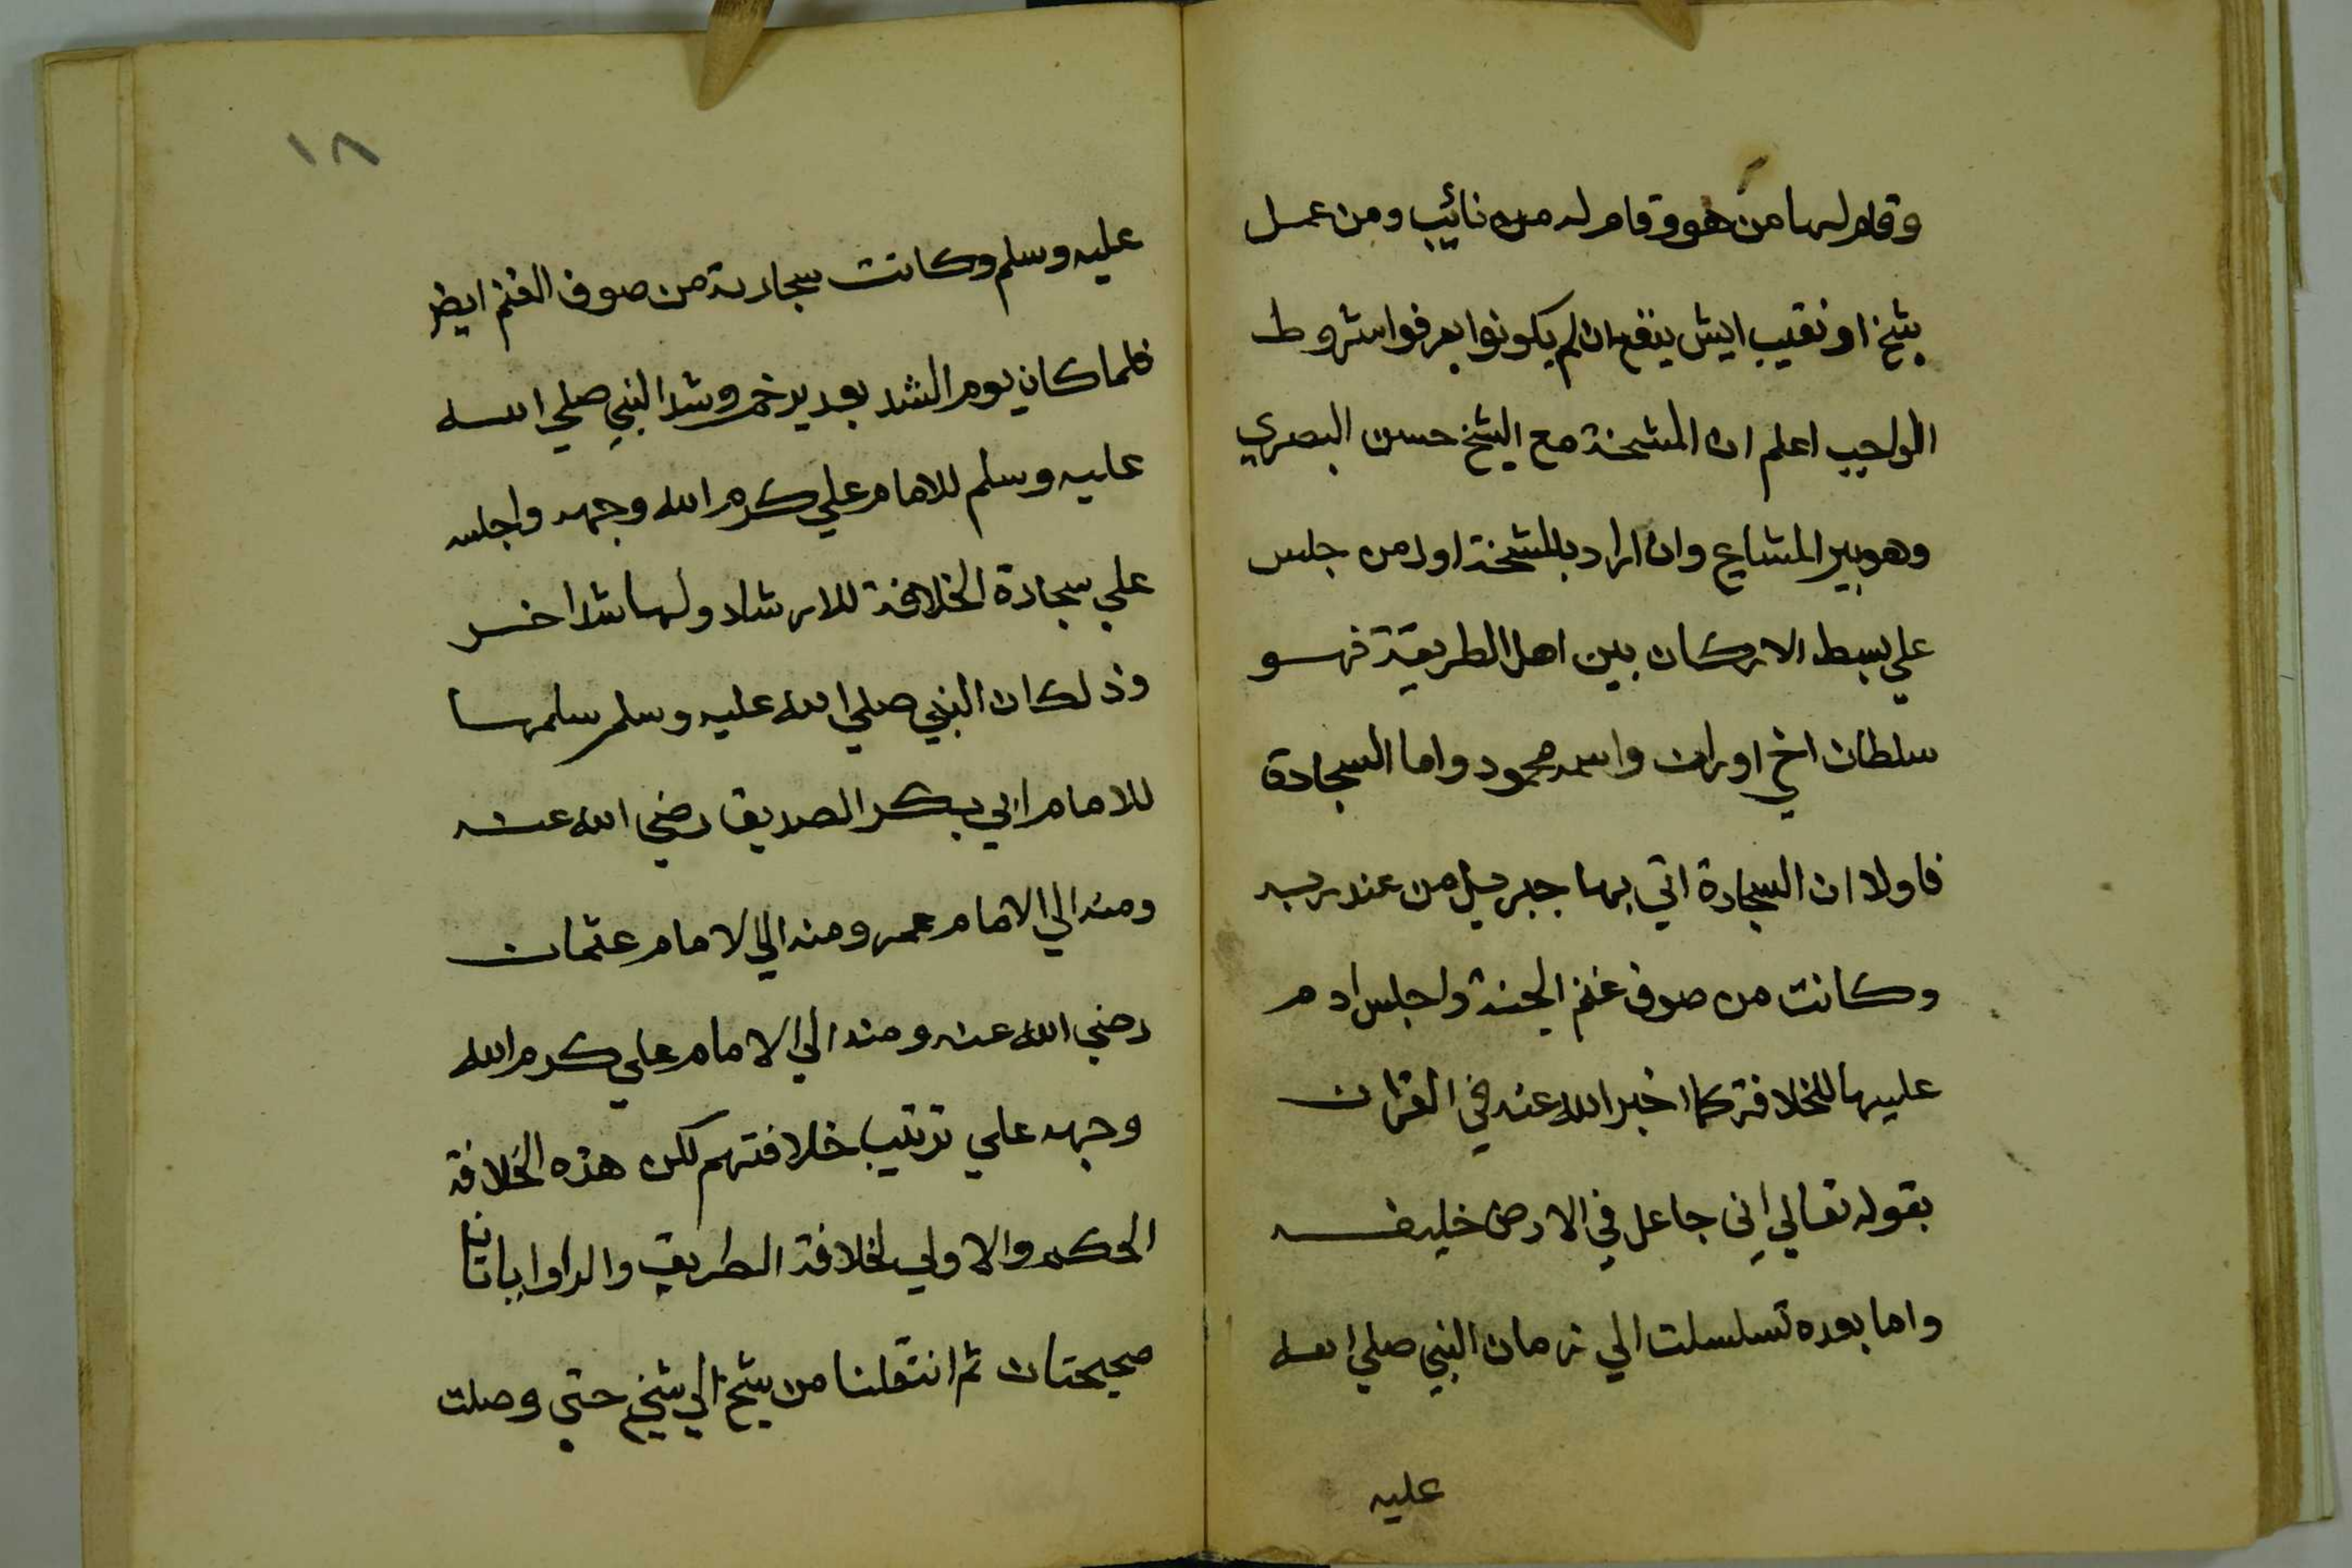 وقام لها من هو وقام له من نائب ومن عمل
بشيخ او نقيب ايش ينفع ان لم يكونوا يعرفوا شروط
الواجب اعلم ان المشخة مع الشيخ حسن البصري
وهو بير المشايخ وان اراد بالمشخة اول من جلس
علي بسط الاركان بين اهل الطريقة فهو
سلطان اخي اوران واسمه محمود واما السجادة
فاولا ان السجادة اتي بها جبريل من عند ربه
وكانت من صوف غنم الجنة واجلس ادم
عليها للخلافة كما اخبر الله عنه في القران
بقوله تعالي اِني جاعل في الارض خليفه
واما بعده تسلسلت الي زمان النبي صلي الله
عليه
١٨
عليه وسلم وكانت سجادته من صوف الغنم ايضا
فلما كان يوم الشد بغدير خم وشد النبي صلي الله
عليه وسلم للامام علي كرم الله وجهه واجلسه
علي سجادة الخلافة للارشاد ولها شد اخر
وذلك ان النبي صلي الله عليه وسلم سلمها
للامام ابي بكر الصديق رضي الله عنه
ومنه الي الامام عمر ومنه الي الامام عثمان
رضي الله عنه ومنه الي الامام علي كرم الله
وجهه علي ترتيب خلافتهم لكن هذه الخلافة
الحكم والاولي لخلافة الطريق
صحيحتان ثم انتقلنا من شيخ الي شيخ حتي وصلت